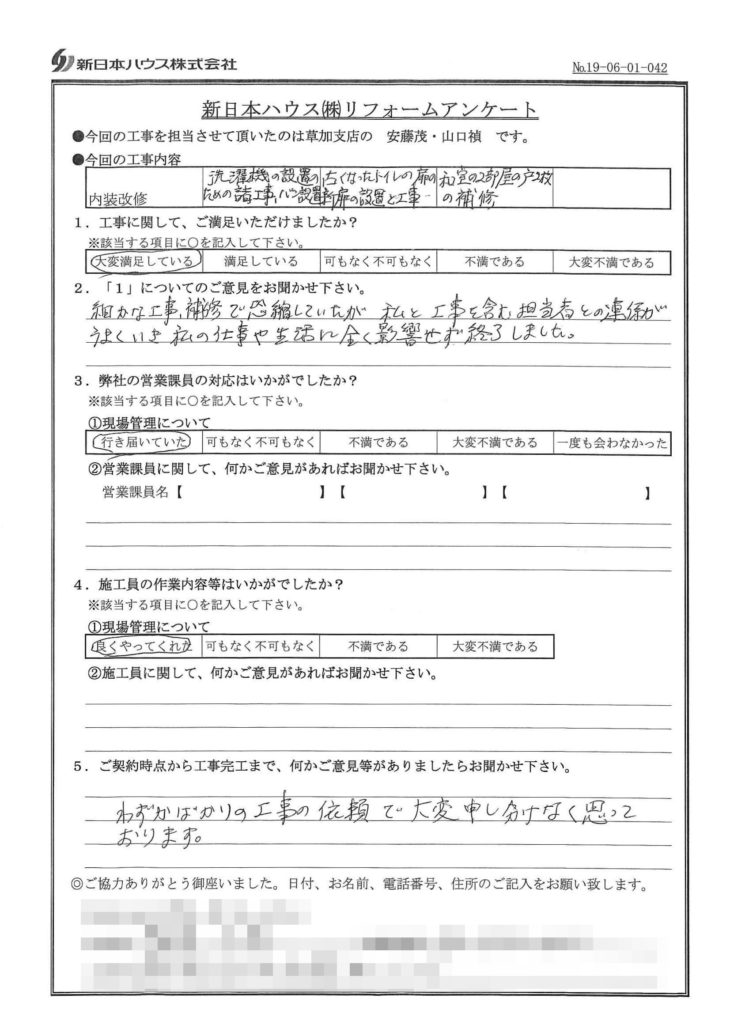 新日本ハウス株式会社
№19-06-01-042
新日本ハウス㈱リフォームアンケート
●今回の工事を担当させて頂いたのは草加支店の 安藤茂・山口禎 です。
●今回の工事内容
内装改修
洗濯機の設置の
ための諸工事、
古くなったトイレの扉の
新扉の設置と工事
和室の2部屋の戸2枚
の補修
1．工事に関して、ご満足いただけましたか？
※該当する項目に○を記入して下さい。
大変満足している 満足している 可もなく不可もなく 不満である 大変不満である
2．「1」についてのご意見をお聞かせ下さい。
細かな工事、補修で恐縮していたが 私と工事を含む担当者との連係が
うまくいき 私の仕事や生活に全く影響せず終了しました。
3．弊社の営業課員の対応はいかがでしたか？
※該当する項目に○を記入して下さい。
①現場管理について
行き届いていた 可もなく不可もなく 不満である 大変不満である 一度も会わなかった
②営業課員に関して、何かご意見があればお聞かせ下さい。
営業課員名【 】【 】【 】
4．施工員の作業内容等はいかがでしたか？
※該当する項目に○を記入して下さい。
①現場管理について
良くやってくれた 可もなく不可もなく 不満である 大変不満である
②施工員に関して、何かご意見があればお聞かせ下さい。
5．ご契約時点から工事完工まで、何かご意見等がありましたらお聞かせ下さい。
わずかばかりの工事の依頼で大変申し分けなく思って
おります。
◎ご協力ありがとう御座いました。日付、お名前、電話番号、住所のご記入をお願い致します。